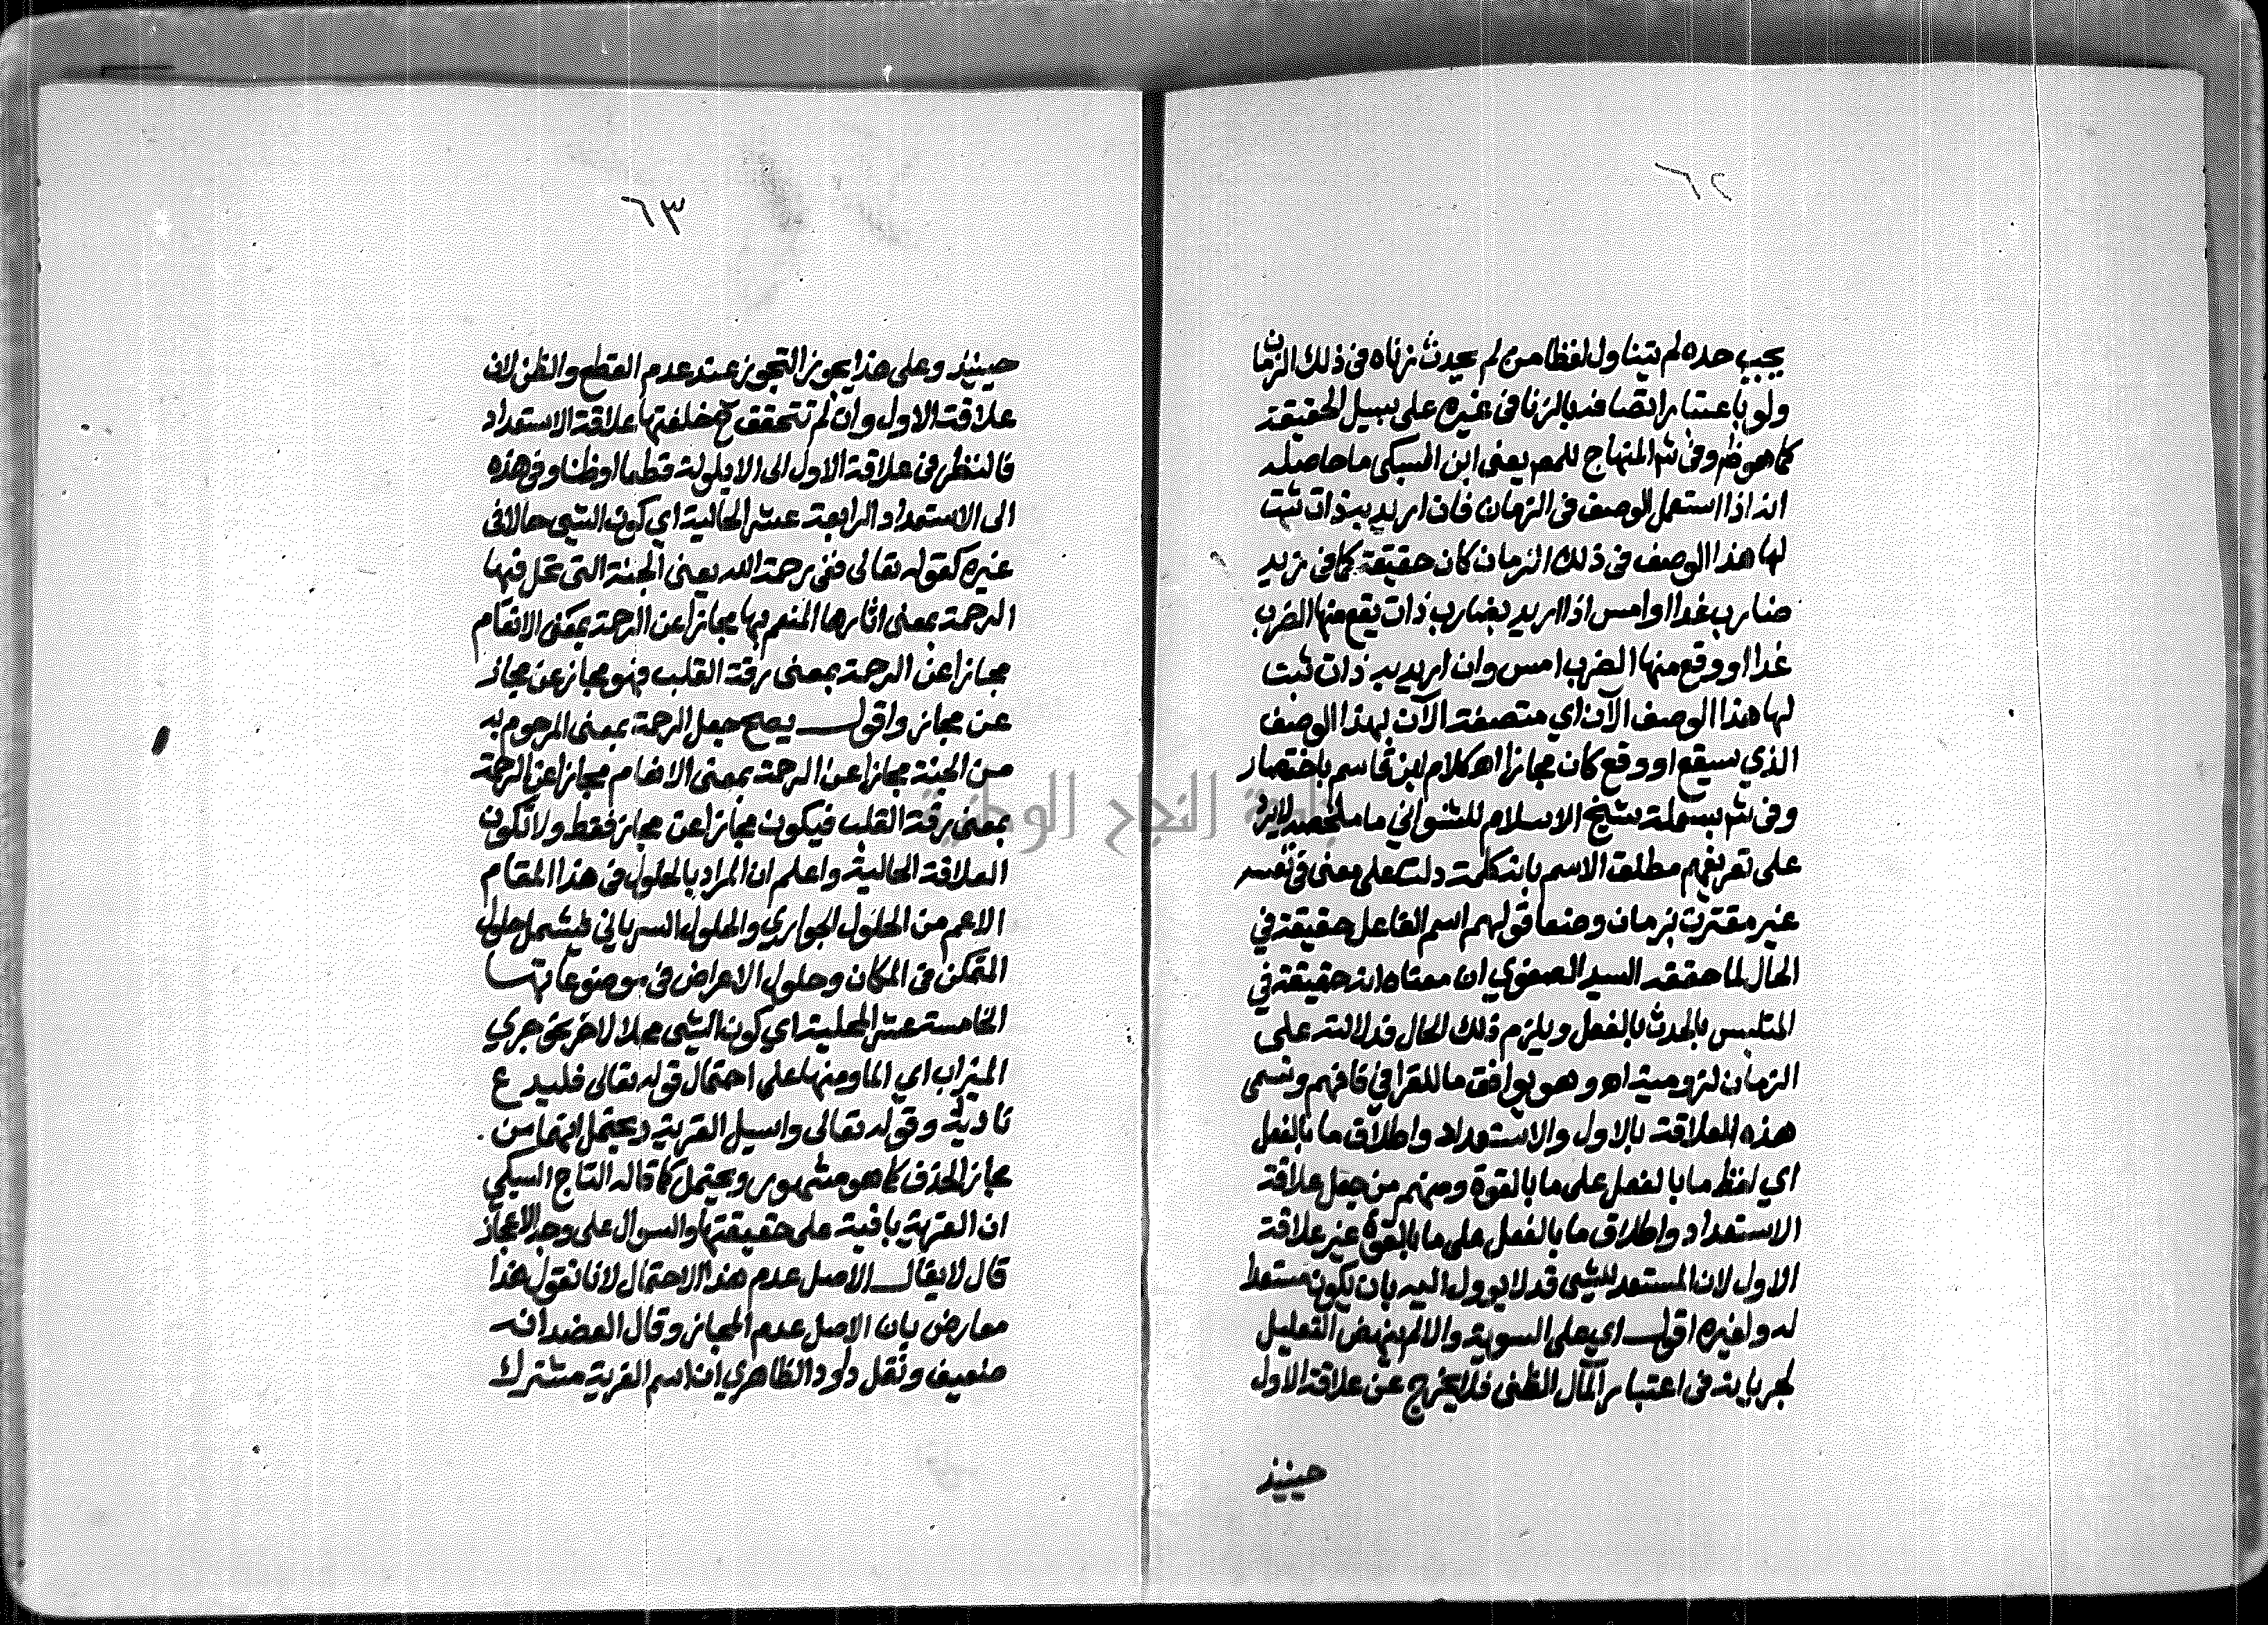 ٦٢
يجب حده لم يتناول لفظا من لم يحدث زناه في ذلك الزمان
ولو باعتبار اتصافه بالزنا في غيره على سبيل الحقيقة
كما هو ظ وفي شم المنهاج للمص يعني ابن السبكي ما حاصله
انه اذا استعمل الوصف في الزمان فان اريد به ذات ثبت
لها هذا الوصف في ذلك الزمان كان حقيقة كما في زيد
ضارب غدا او امس اذا اريد بضارب ذات يقع منها الضرب
غدا او وقع منها الضرب امس وان اريد به ذات ثبت
لها هذا الوصف الآن اي متصفة الآن بهذا الوصف
الذي سيقع او وقع كان مجازا اه كلام ابن قاسم باختصار
وفي شم بسملة شيخ الاسلام للشنواني ما ملخصه لا يرد
على تعريفهم مطلق الاسم بانه كلمة دلت على معنى في نفسه
غير مقترن بزمان وضعا قولهم اسم الفاعل حقيقة في
الحال لما حققه السيد الصفوي ان معناه انه حقيقة في
المتلبس بالحدث بالفعل ويلزم ذلك الحال فدلالته على
الزمان لزومية اه وهو يوافق ما للقرافي فافهم وتسمى
هذه العلاقة بالاول والاستعداد واطلاق ما بالفعل
اي لفظ ما بالفعل على ما بالقوة ومنهم من جعل علاقة
الاستعداد واطلاق ما بالفعل على ما بالقوة غير علاقة
الاول لان المستعد للشي قد لا يوول اليه بان يكون مستعدا
له ولغيره اقول اي على السوية والا لم ينهض التعليل
لجريانه في اعتبار المآل الظني فلا يخرج عن علاقة الاول
حينيذ
٦٣
حينيذ وعلى هذا يجوز التجوز عند عدم القطع والظن لان
علاقة الاول وان لم تتحقق ح خلفتها علاقة الاستعداد
فالنظر في علاقة الاول الى الايلولة قطعا او ظنا وفي هذه
الى الاستعداد الرابعة عشر الحالية اي كون الشي حالا في
غيره كقوله تعالى ففي رحمة الله يعني الجنة التي تحل فيها
الرحمة بمعنى اثارها المنعم بها مجازا عن الرحمة بمعنى الانعام
مجازا عن الرحمة بمعنى رقة القلب فهو مجاز عن مجاز
عن مجاز واقول يصح جعل الرحمة بمعنى المرحوم به
من الجنة مجازا عن الرحمة بمعنى الانعام مجازا عن الرحمة
بمعنى رقة القلب فيكون مجازا عن مجاز فقط ولا تكون
العلاقة الحالية واعلم ان المراد بالحلول في هذا المقام
الاعم من الحلول الجواري والحلول السرياني فيشمل حلول
المتمكن في المكان وحلول الاعراض في موضوعاتها
الخامسة عشر المحلية اي كون الشي محلا لاخر نحو جري
الميزاب اي الماء ومنها على احتمال قوله تعالى فليدع
ناديه وقوله تعالى واسيل القرية ويحتمل انهما من
مجاز الحذف كما هو مشهور ويحتمل كما قاله التاج السبكي
ان القرية باقية على حقيقتها والسوال على وجه الاعجاز
قال لا يقال الاصل عدم هذا الاحتمال لانا نقول هذا
معارض بان الاصل عدم المجاز وقال العضد انه
ضعيف ونقل داود الظاهري ان اسم القرية مشترك
جامعة النجاح الوطنية